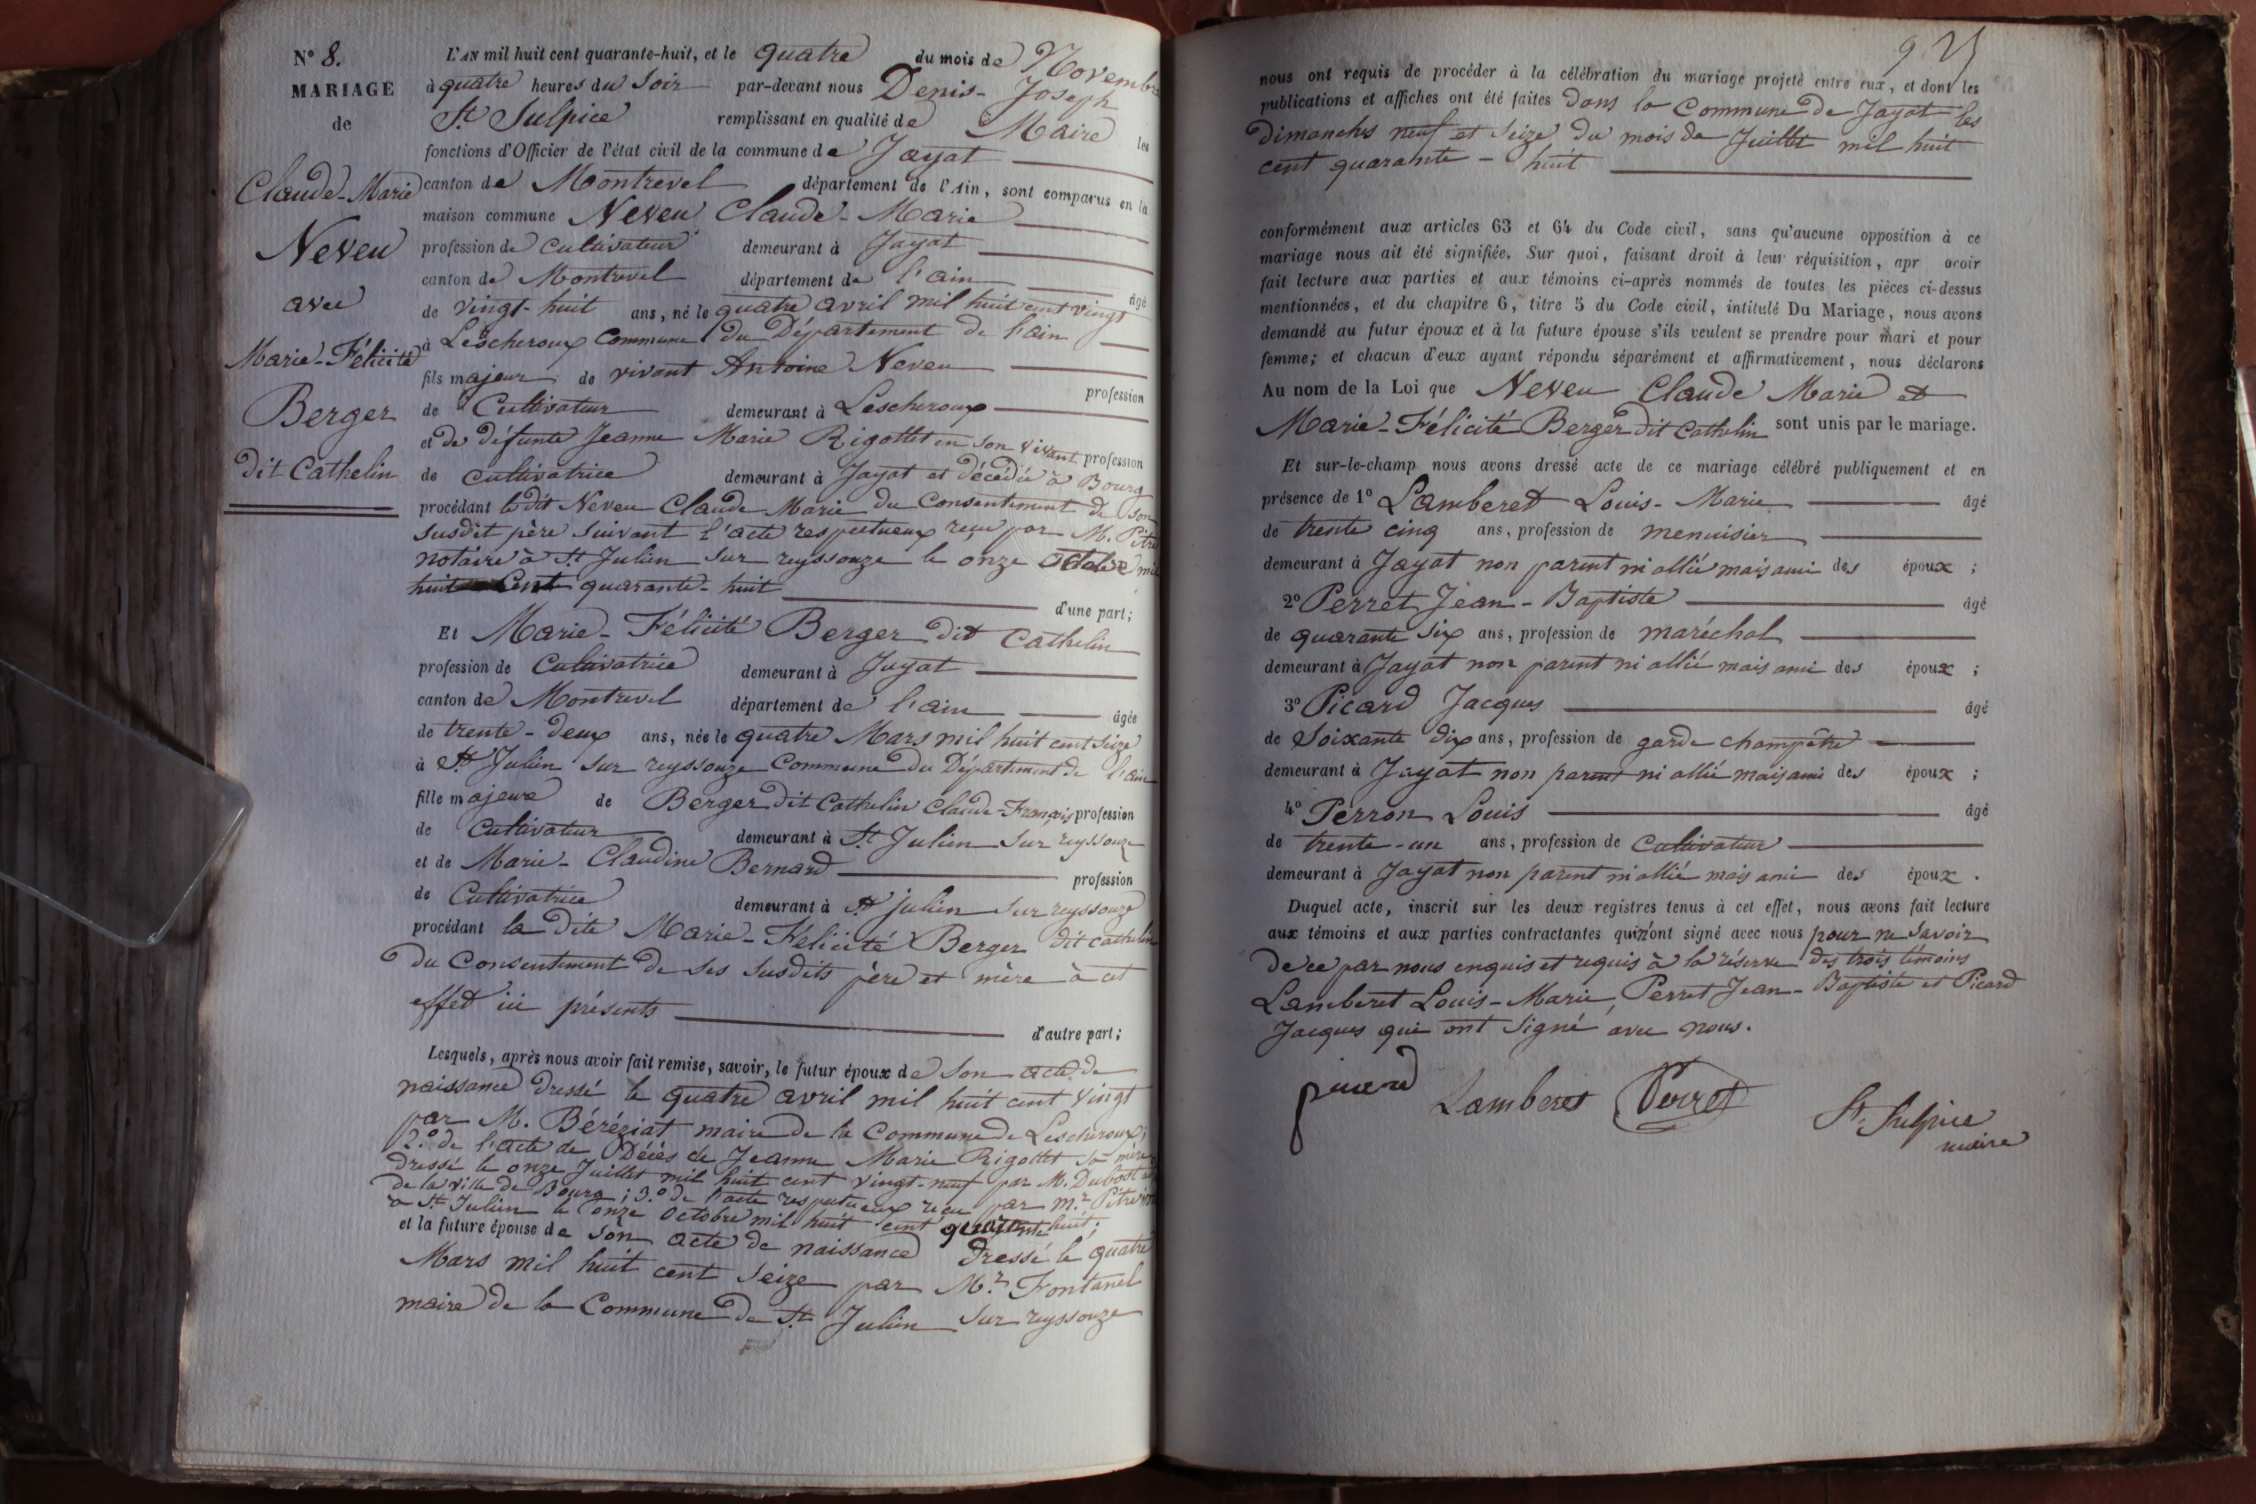 N° 8.
MARIAGE
de
Claude-Marie
Neveu
avec
Marie-Félicité
Berger
dit Cathelin
L'AN mil huit cent quarante-huit, et le quatre du mois de Novembre
à quatre heures du Soir par-devant nous Denis-Joseph
St Sulpice remplissant en qualité de Maire les
fonctions d'Officier de l'état civil de la commune de Jayat
canton de Montrevel département de l'Ain, sont comparus en la
maison commune Neveu Claude-Marie
profession de cultivateur demeurant à Jayat
canton de Montrevel département de l'ain âgé
de vingt-huit ans, né le quatre avril mil huit cent vingt
à Lescheroux Commune du Département de l'ain
fils majeur de vivant Antoine Neveu profession
de Cultivateur demeurant à Lescheroux
et de défunte Jeanne Marie Rigottet en son vivant profession
de cultivatrice demeurant à Jayat et décédée à Bourg
procédant ledit Neveu Claude Marie du Consentement de son
susdit père suivant l'acte respectueux reçu par M.
notaire à St Julien sur reyssouze le onze octobre mil
huit Cent quarante-huit d'une part;
Et Marie-Félicité Berger dit Cathelin
profession de Cultivatrice demeurant à Jayat
canton de Montrevel département de l'ain âgée
de trente-deux ans, née le quatre Mars mil huit cent seize
à St Julien sur reyssouze Commune du Département de l'ain
fille majeure de Berger dit Cathelin Claude-François profession
de Cultivateur demeurant à St Julien sur reyssouze
et de Marie-Claudine Bernard profession
de Cultivatrice demeurant à St julien sur reyssouze
procédant la dite Marie-Félicité Berger dit Cathelin
du Consentement de ses susdits père et mère à cet
effet ici présents d'autre part;
Lesquels, après nous avoir fait remise, savoir, le futur époux de son acte de
naissance dressé le quatre avril mil huit cent vingt
par M. Béréziat maire de la Commune de Lescheroux;
2° de l'acte de Décès de Jeanne Marie Rigottet sa mère
dressé le onze Juillet mil huit cent vingt-neuf par M. Dubost
de la ville de Bourg; 3° de l'acte respectueux reçu par mr
à St Julien le onze octobre mil huit cent quarante huit;
et la future épouse de son acte de naissance dressé le quatre
Mars mil huit cent seize par Mr. Fontanel
maire de la Commune de St Julien sur reyssouze
nous ont requis de procéder à la célébration du mariage projeté entre eux, et dont les
publications et affiches ont été faites dans la Commune de Jayat les
Dimanches neuf et seize du mois de Juillet mil huit
cent quarante-huit
conformément aux articles 63 et 64 du Code civil, sans qu'aucune opposition à ce
mariage nous ait été signifiée. Sur quoi, faisant droit à leur réquisition, apr avoir
fait lecture aux parties et aux témoins ci-après nommés de toutes les pièces ci-dessus
mentionnées, et du chapitre 6, titre 5 du Code civil, intitulé Du Mariage, nous avons
demandé au futur époux et à la future épouse s'ils veulent se prendre pour mari et pour
femme; et chacun d'eux ayant répondu séparément et affirmativement, nous déclarons
Au nom de la Loi que Neveu Claude Marie et
Marie-Félicité Berger dit Cathelin sont unis par le mariage.
Et sur-le-champ nous avons dressé acte de ce mariage célébré publiquement et en
présence de 1° Lamberet Louis-Marie âgé
de trente cinq ans, profession de menuisier
demeurant à Jayat non parent ni allié mais ami des époux;
2° Perret Jean-Baptiste âgé
de quarante six ans, profession de maréchal
demeurant à Jayat non parent ni allié mais ami des époux;
3° Picard Jacques âgé
de Soixante dix ans, profession de garde champêtre
demeurant à Jayat non parent ni allié mais ami des époux;
4° Perron Louis âgé
de trente-un ans, profession de Cultivateur
demeurant à Jayat non parent ni allié mais ami des époux.
Duquel acte, inscrit sur les deux registres tenus à cet effet, nous avons fait lecture
aux témoins et aux parties contractantes qui n'ont signé avec nous pour ne savoir
de ce par nous enquis et requis à la réserve des trois témoins
Lamberet Louis-Marie, Perret Jean-Baptiste et Picard
Jacques qui ont signé avec nous.
picard Lamberet Perret St. Sulpice
maire